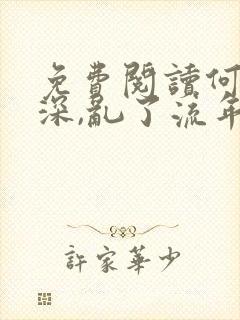 免費閱讀何
深,亂了流年
許家華少